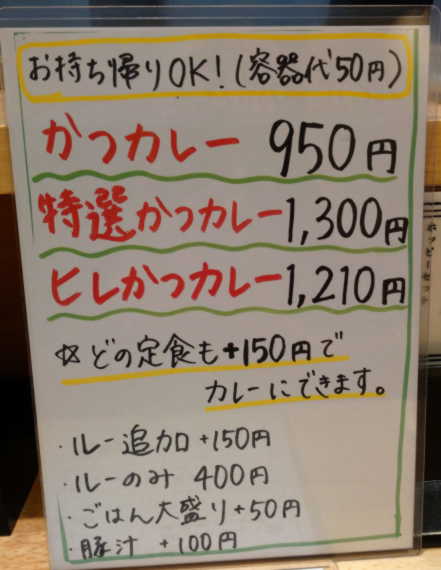 お持ち帰りOK!(容器代50円)
かつカレー 950円
特選かつカレー1,300円
ヒレかつカレー1,210円
☆どの定食も+150円で
カレーにできます。
・ルー追加 +150円
・ルーのみ 400円
・ごはん大盛り+50円
・豚汁 +100円
ホッピーセット